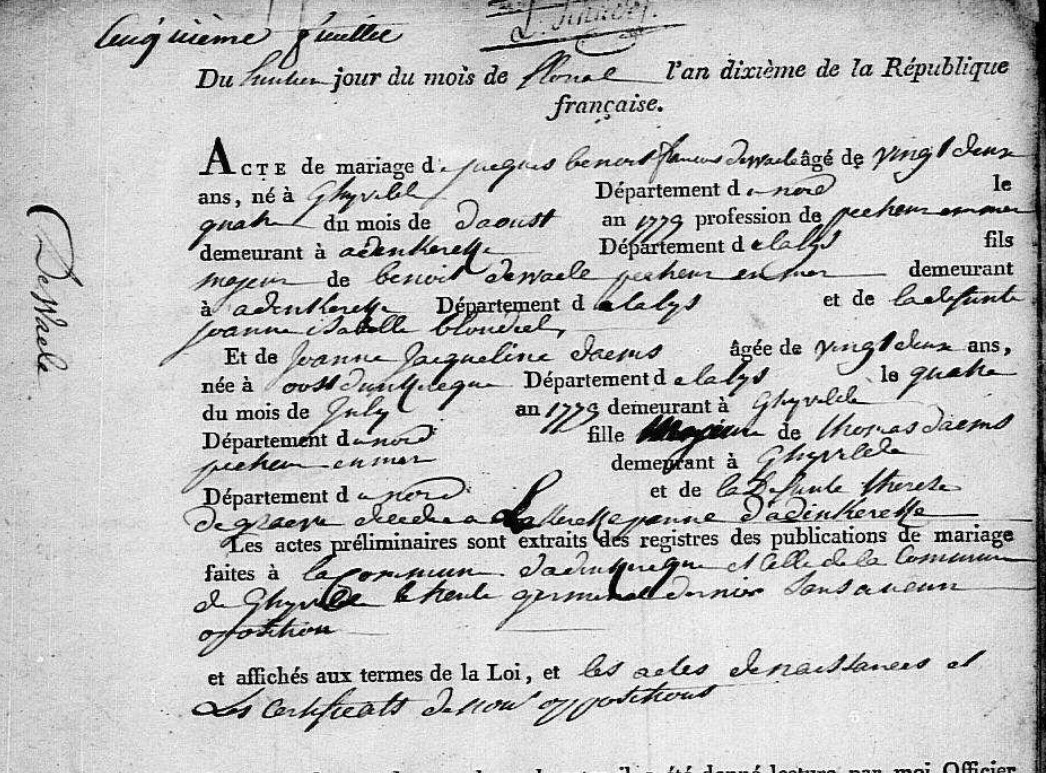 Cinquième feuille
Du huitieme jour du mois de floreal l'an dixième de la République
française.
ACTE de mariage de jacques benoit francois dewaele âgé de vingt deux
ans, né à Ghyvelde Département du nord le
quatre du mois de daoust an 1779 profession de pecheur en mer
demeurant à adinkerke Département de la lys fils
majeur de benoit dewaele pecheur en mer demeurant
à adinkerke Département de la lys et de la defunte
joanne isabelle blondeel,
Et de joanne jacqueline daems âgée de vingt deux ans,
née à oostdunkerque Département de la lys le quatre
du mois de july an 1779 demeurant à Ghyvelde
Département du nord fille majeure de thomas daems
pecheur en mer demeurant à Ghyvelde
Département du nord et de la defunte therese
de graeve decedee a
Les actes préliminaires sont extraits des registres des publications de mariage
faites à la commune dadinkerque et celle de la commune
de Ghyvelde le trente germinal dernier sans aucun
oposition
et affichés aux termes de la Loi, et les actes de naissances et
Les certificats de non oppositions
il a été donné lecture par moi Officier
DeWaele